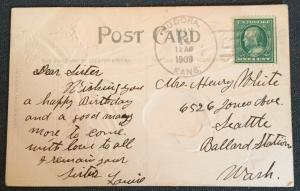 POST CARD
EUDORA
12 AM
1909
KANS.
ONE CENT
Dear Sister
Wishing you
a happy Birthday
and a good many
more to come.
with love to all
I remain your
Sister
Mrs. Henry White
6526 Jones Ave.
Seattle
Ballard Station
Wash.